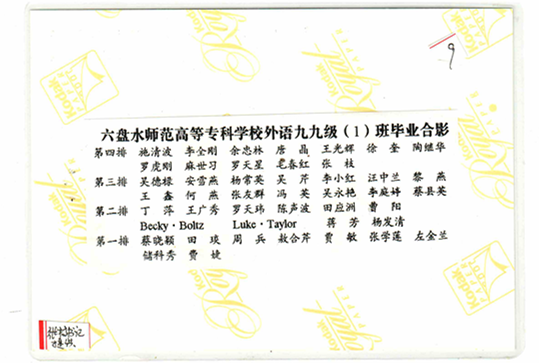 9
六盘水师范高等专科学校外语九九级(1)班毕业合影
第四排 施清波 李全刚 余忠林 唐晶 王光辉 徐奎 陶继华
罗虎刚 麻世习 罗天星 毛春红 张枝
第三排 吴德檬 安雪燕 杨常英 吴芹 李小红 汪中兰 黎燕
王鑫 何燕 张友群 冯英 吴永艳 李庭婷 蔡县英
第二排 丁萍 王广秀 罗天玮 陈声波 田应洲 曹阳
Becky·Boltz Luke·Taylor 蒋芳 杨发清
第一排 蔡晓颖 田琰 周兵 敖合芹 贾敏 张学莲 左金兰
储科秀 贾婕
Kodak
Royal
PAPER